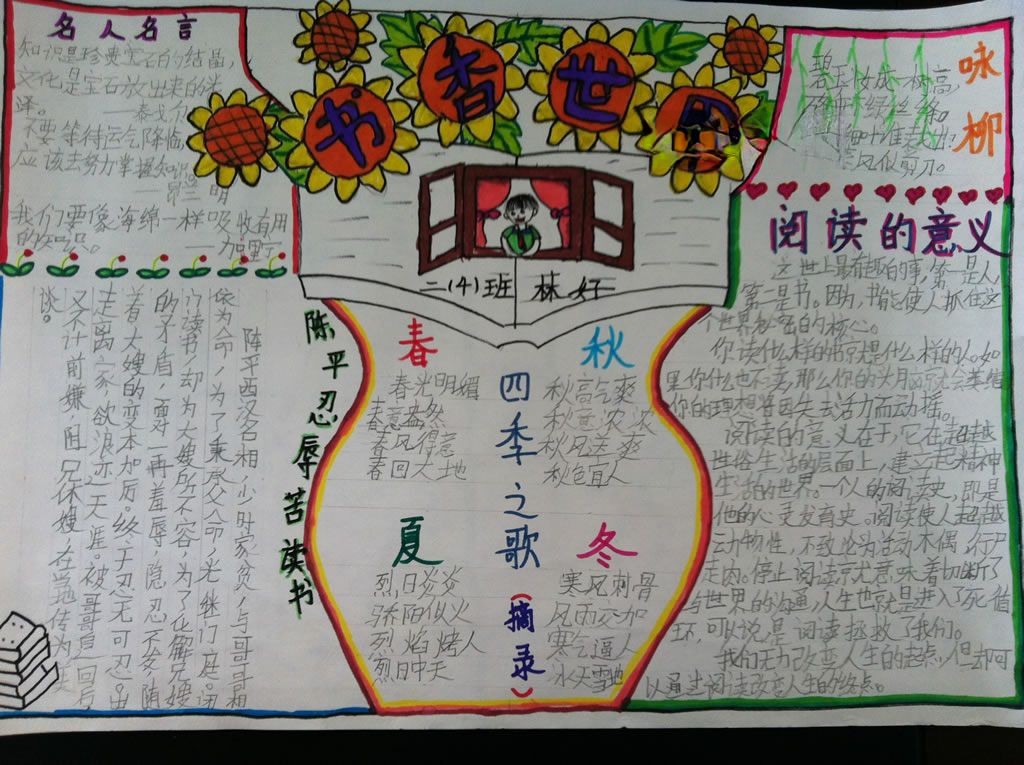 书香世园
名人名言
知识是珍贵宝石的结晶,
文化是宝石放出来的光
泽。 ——泰戈尔
不要等待运气降临,
应该去努力掌握知识。
我们要像海绵一样吸收有用
的知识。 ——加里宁
二(4)班 林好
咏柳
碧玉妆成一树高,
万条垂下绿丝绦。
不知细叶谁裁出:
春风似剪刀。
阅读的意义
这世上最有趣的事,第一是人,
第二是书。因为,书能使人抓住这
个世界秘密的核心。
你读什么样的书就是什么样的人。如
果你什么也不读,那么你的头脑就会萎缩
你的理想将因失去活力而动摇。
阅读的意义在于,它在超越
世俗生活的层面上,建立起精神
生活的世界。一个人的阅读史,即是
他的心灵发育史。阅读使人超越
动物性,不致沦为活动木偶,行尸
走肉。停止阅读就意味着切断了
与世界的沟通,人生也就是进入了死循
环,可以说是阅读拯救了我们。
我们无力改变人生的起点,但却可
以通过阅读改变人生的终点。
陈平忍辱苦读书
陈平西汉名相,少时家贫,与哥哥相
依为命,为了秉承父命,光继门庭。闭
门读书,却为大嫂所不容,为了化解兄嫂
的矛盾,面对一再羞辱,隐忍不发,随
着大嫂的变本加厉。终于忍无可忍。出
走离家,欲浪迹天涯。被哥哥追回后
又不计前嫌,阻兄休嫂,在当地传为美
谈。
四季之歌(摘录)
春
春光明媚
春意盎然
春风得意
春回大地
夏
烈日炎炎
骄阳似火
烈焰烤人
烈日中天
秋
秋高气爽
秋意浓浓
秋风送爽
秋色宜人
冬
寒风刺骨
风雨交加
寒气逼人
冰天雪地